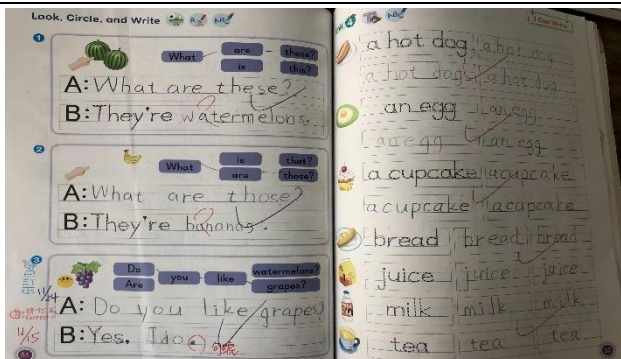 Look, Circle, and Write
ABC
1
What are these?
is this?
A: What are these?
B: They're watermelons.
2
What is that?
are those?
A: What are those?
B: They're bananas.
3
Do you like watermelons?
Are grapes?
A: Do you like grapes
B: Yes, I do.
11/24
11/15
51
4
ABC
I Can Write
a hot dog a hot dog
a hot dog a hot dog
an egg an egg
an egg an egg
a cupcake a cupcake
a cupcake a cupcake
bread bread bread
juice juice juice
milk milk milk
tea tea tea